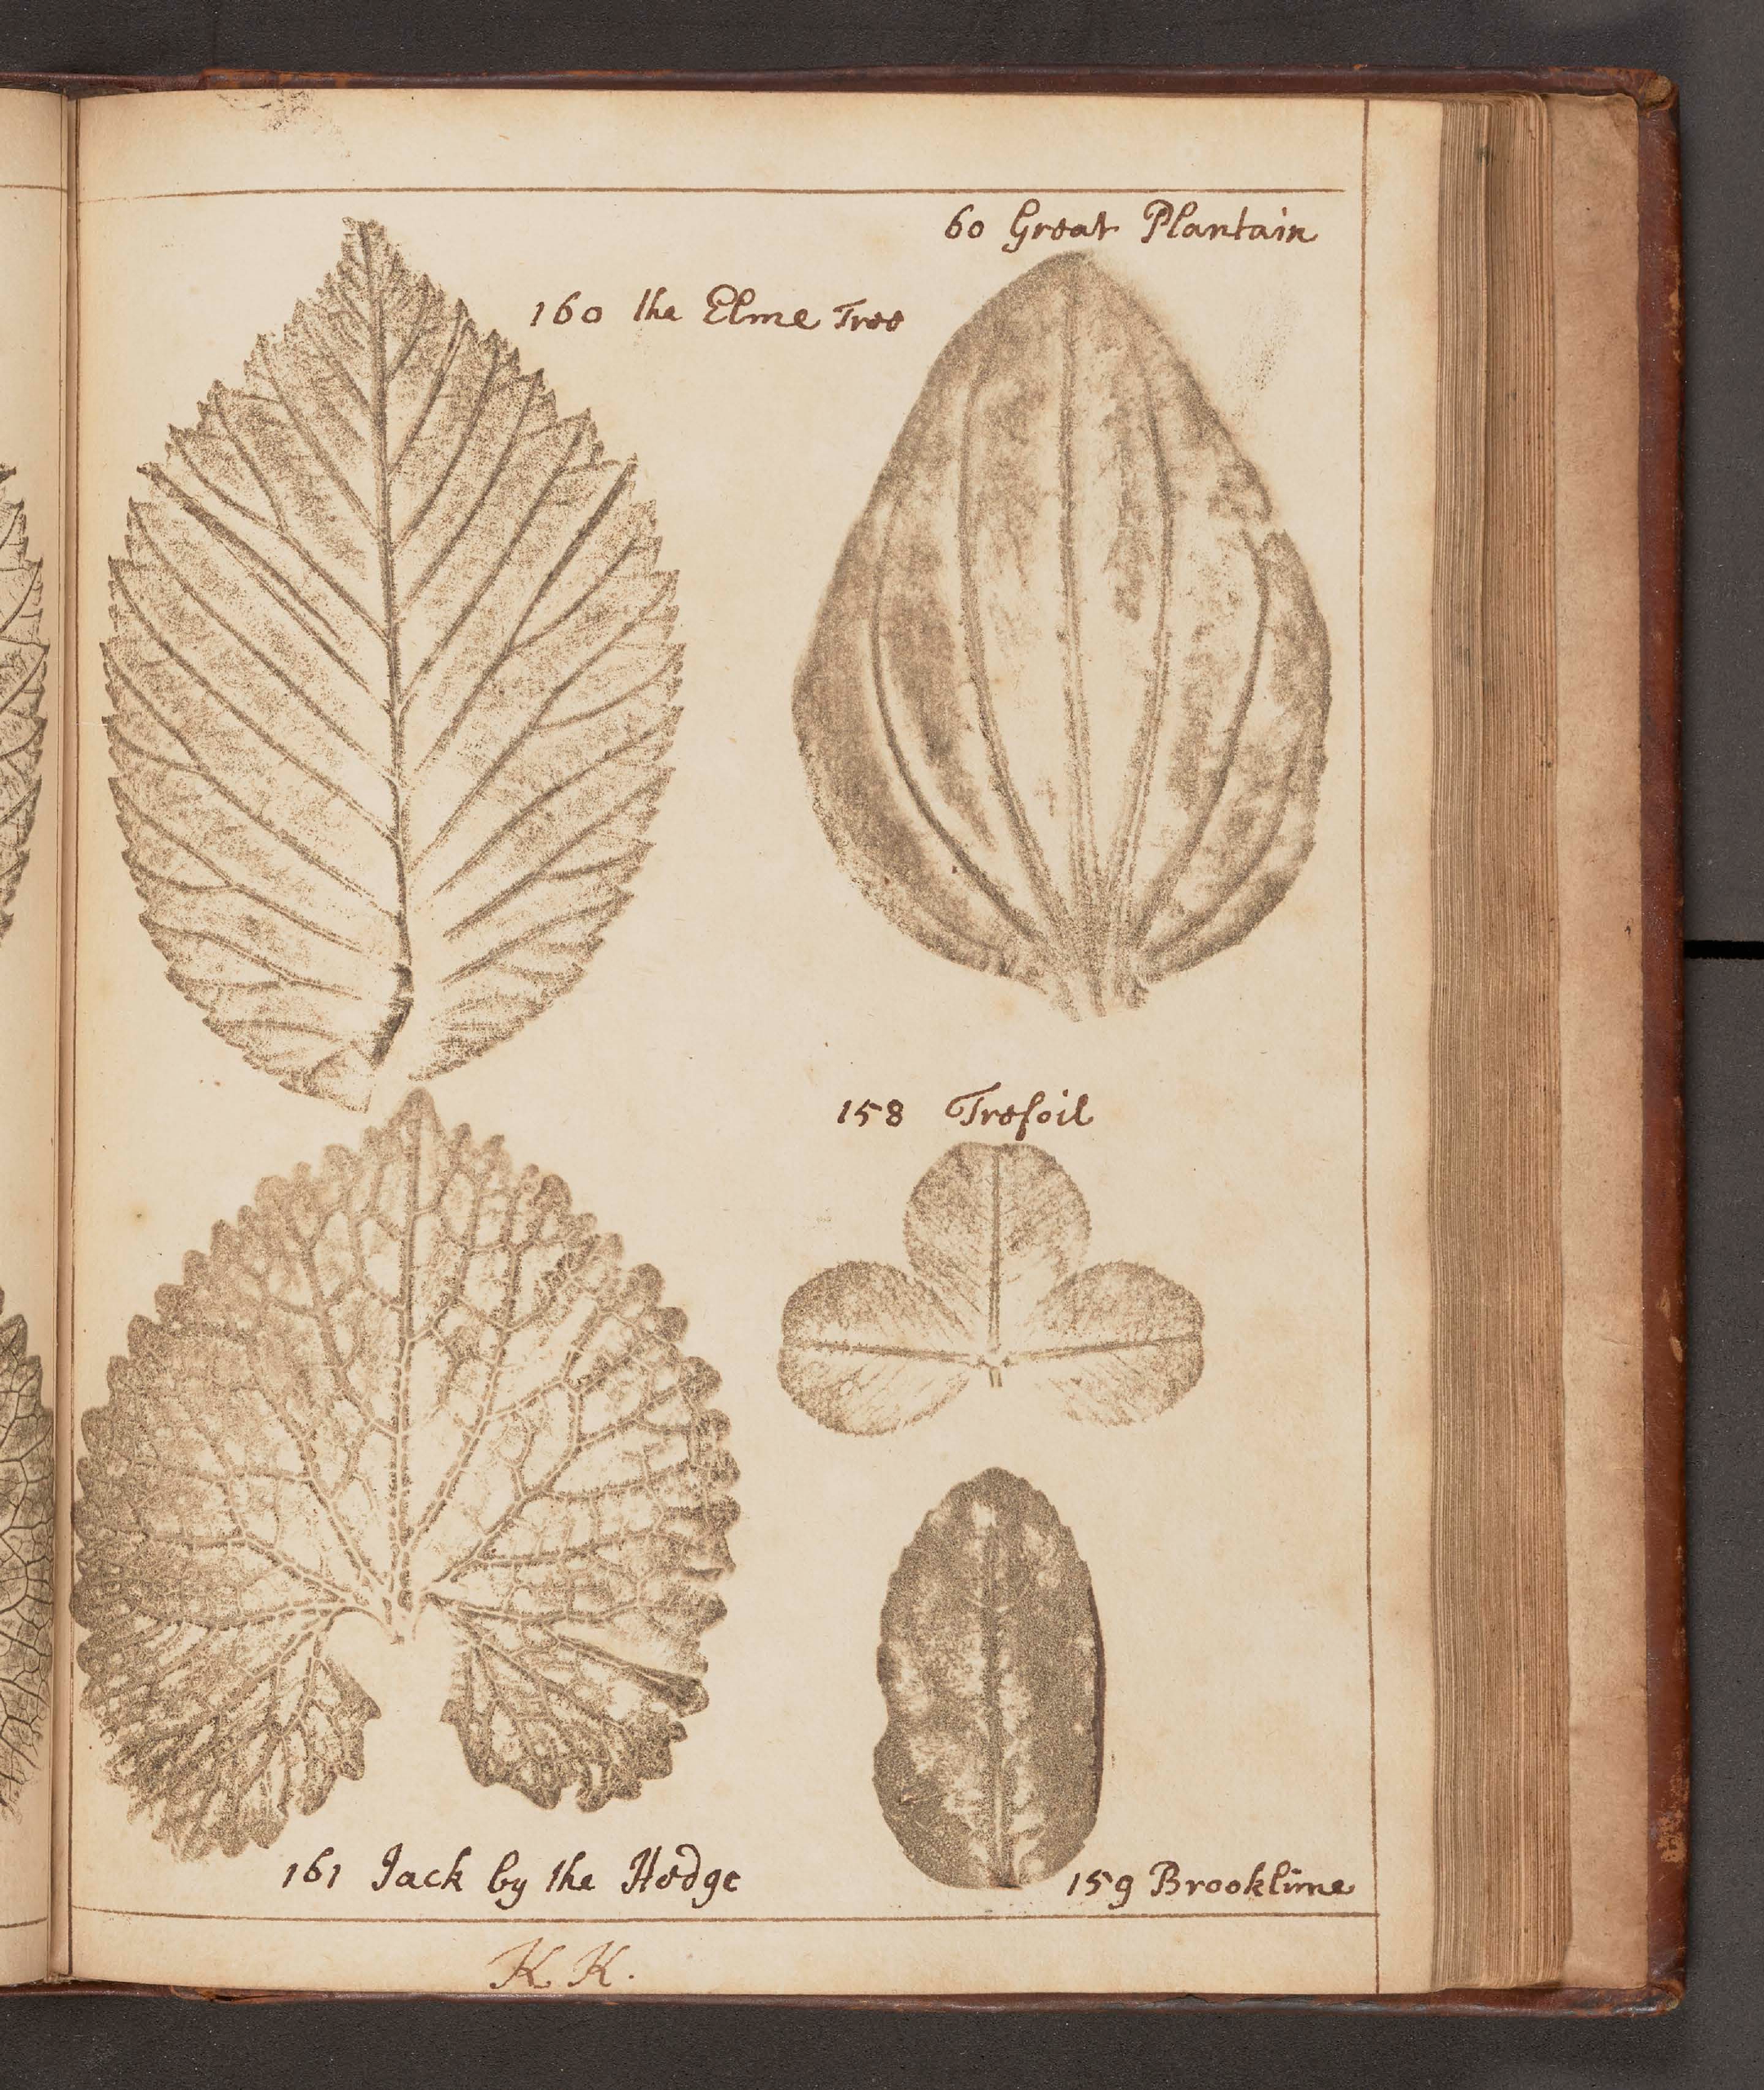 60 Great Plantain
160 the Elme Tree
158 Trefoil
161 Jack by the Hedge
159 Brooklime
K K.